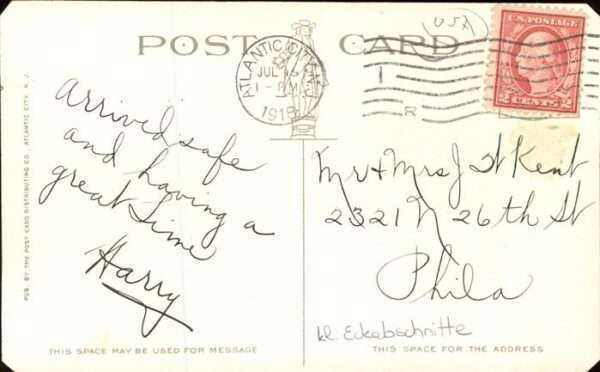 POST CARD
USA
ATLANTIC CITY, N.J.
JUL
1-PM
1918
U.S. POSTAGE
2 CENTS 2
arrived safe
and having a
great time
Harry
Mr & Mrs J H Kent
2321 N 26th St
Phila
kl. Eckabschnitte
THIS SPACE MAY BE USED FOR MESSAGE
THIS SPACE FOR THE ADDRESS
PUB. BY THE POST CARD DISTRIBUTING CO., ATLANTIC CITY, N. J.